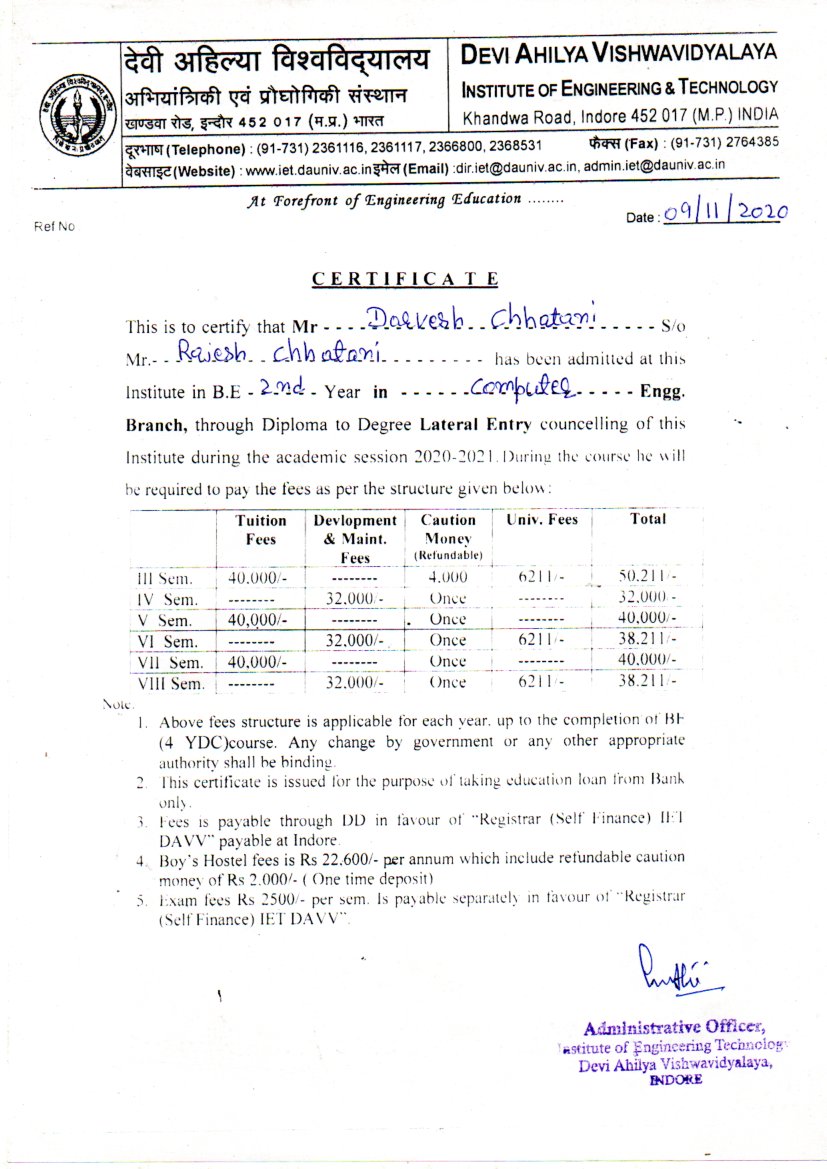 देवी अहिल्या विश्वविद्यालय
अभियांत्रिकी एवं प्रौघोगिकी संस्थान
खण्डवा रोड, इन्दौर 452 017 (म.प्र.) भारत
DEVI AHILYA VISHWAVIDYALAYA
INSTITUTE OF ENGINEERING & TECHNOLOGY
Khandwa Road, Indore 452 017 (M.P.) INDIA
दूरभाष (Telephone) : (91-731) 2361116, 2361117, 2366800, 2368531 फैक्स (Fax) : (91-731) 2764385
वेबसाइट (Website) : www.iet.dauniv.ac.in इमेल (Email) :dir.iet@dauniv.ac.in, admin.iet@dauniv.ac.in
At Forefront of Engineering Education ........
Ref No
Date : 09/11/2020
CERTIFICATE
This is to certify that Mr ----Darvesh--Chhatani------ S/o
Mr.--Rajesh--Chhatani--------- has been admitted at this
Institute in B.E -2nd- Year in ------Computer----- Engg.
Branch, through Diploma to Degree Lateral Entry councelling of this
Institute during the academic session 2020-2021. During the course he will
be required to pay the fees as per the structure given below:
Tuition Fees Devlopment & Maint. Fees Caution Money (Refundable) Univ. Fees Total
III Sem. 40,000/- -------- 4,000 6211/- 50,211/-
IV Sem. -------- 32,000/- Once -------- 32,000/-
V Sem. 40,000/- -------- Once -------- 40,000/-
VI Sem. -------- 32,000/- Once 6211/- 38,211/-
VII Sem. 40,000/- -------- Once -------- 40,000/-
VIII Sem. -------- 32,000/- Once 6211/- 38,211/-
Note:
1. Above fees structure is applicable for each year, up to the completion of BE
(4 YDC)course. Any change by government or any other appropriate
authority shall be binding.
2. This certificate is issued for the purpose of taking education loan from Bank
only.
3. Fees is payable through DD in favour of "Registrar (Self Finance) IET
DAVV" payable at Indore.
4. Boy's Hostel fees is Rs 22,600/- per annum which include refundable caution
money of Rs 2,000/- ( One time deposit)
5. Exam fees Rs 2500/- per sem. Is payable separately in favour of "Registrar
(Self Finance) IET DAVV".
Administrative Officer,
Institute of Engineering Technology
Devi Ahilya Vishwavidyalaya,
INDORE